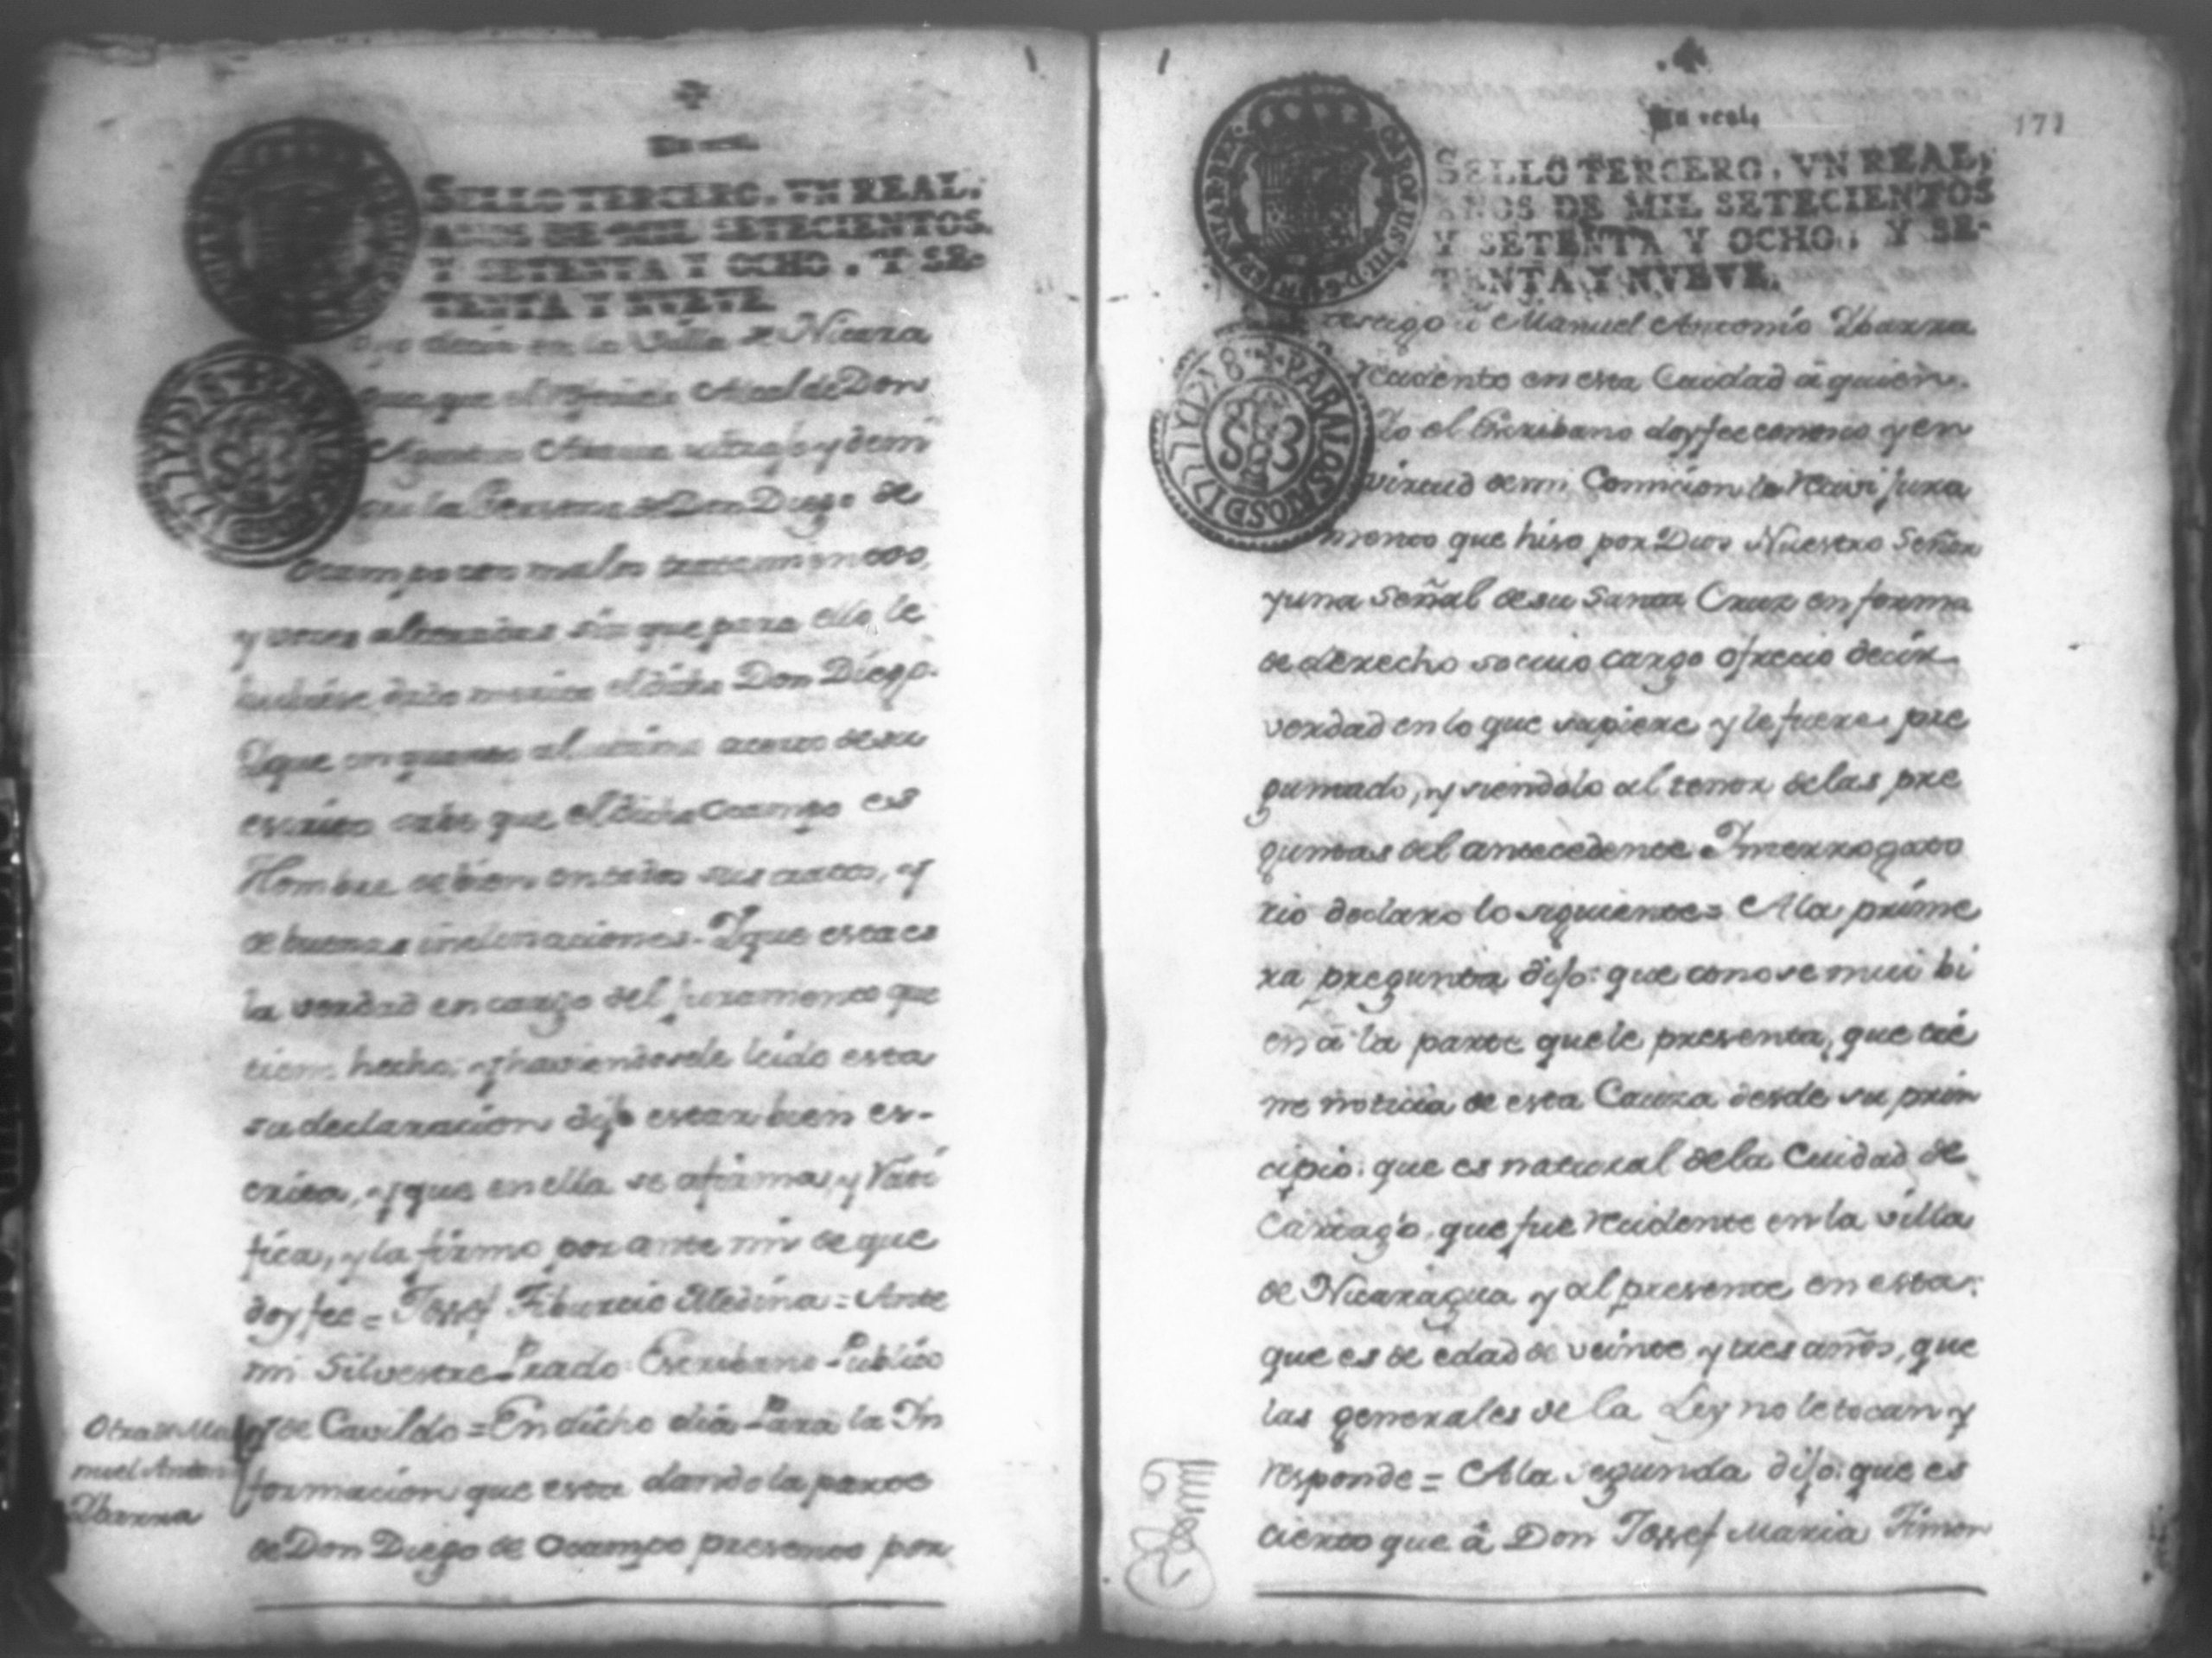 Un real.
SELLO TERCERO, VN REAL,
AÑOS DE MIL SETECIENTOS
Y SETENTA Y OCHO, Y SE-
TENTA Y NVEVE.
oyo decir en la Villa de Nicara
gua que el Alcalde Don
ultrajo y
la Persona de Don Diego de
Ocampo con malos tratamientos,
y voces alteradas sin que para ello le
hubiese dado merito el dicho Don Diego.
Yque en quanto al ultimo acerto de su
escrito save que el dicho Ocampo es
Hombre de bien en todos sus tratos, y
de buenas inclinaciones. Yque esta es
la verdad en cargo del juramento que
tiene hecho; y haviendosele leido esta
su declaracion dijo estar bien es-
crita, y que en ella se afirma, y Rati
fica, y la firmo por ante mi de que
doy fee = Josef Tiburcio Medina = Ante
mi Silvestre Prado Escribano Publico
y de Cavildo = En dicho dia Para la In
formacion que esta dando la parte
de Don Diego de Ocampo presento por
Otra de Ma
nuel Anton
Ybarra
Un real.
171
SELLO TERCERO, VN REAL,
AÑOS DE MIL SETECIENTOS
Y SETENTA Y OCHO, Y SE-
TENTA Y NVEVE.
CAROLUS III D.G. HISPANIAR REX
PARA LOS AÑOS DI7L7 YD78
testigo á Manuel Antonio Ybarra
Recidente en esta Cuidad á quien
Yo el Escribano doy fee conosco y en
virtud de mi Comicion le Recivi jura
mento que hiso por Dios Nuestro Señor
y una Señal de su Santa Cruz en forma
de derecho so cuio cargo ofrecio decir
verdad en lo que supiere y le fuere pre
guntado, y siendolo al tenor de las pre
guntas del antecedente Interrogato
rio declaro lo siguiente = A la prime
ra pregunta dijo: que conose mui bi
en á la parte que le presenta, que tie
ne noticia de esta Cauza desde su prin
cipio: que es natural de la Cuidad de
Cartago, que fue Recidente en la villa
de Nicaragua y al presente en esta:
que es de edad de veinte y tres años, que
las generales de la Ley no le tocan y
responde = A la segunda dijo: que es
cierto que á Don Josef Maria Ximen